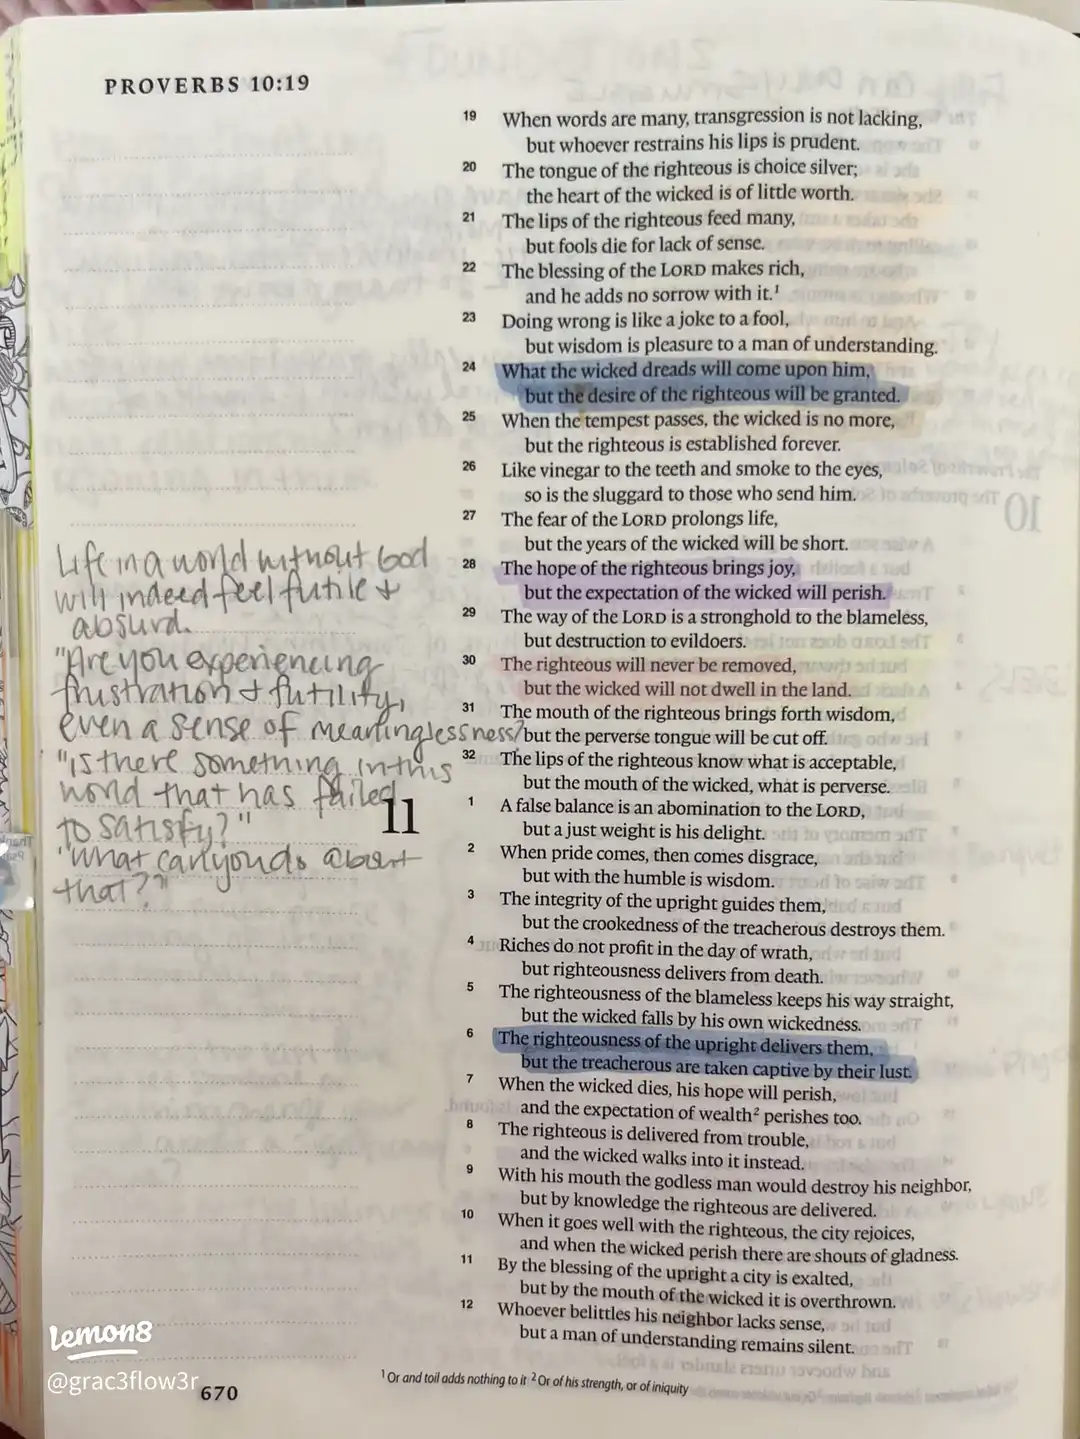 PROVERBS 10:19
19 When words are many, transgression is not lacking,
but whoever restrains his lips is prudent.
20 The tongue of the righteous is choice silver;
the heart of the wicked is of little worth.
21 The lips of the righteous feed many,
but fools die for lack of sense.
22 The blessing of the LORD makes rich,
and he adds no sorrow with it.¹
23 Doing wrong is like a joke to a fool,
but wisdom is pleasure to a man of understanding.
24 What the wicked dreads will come upon him,
but the desire of the righteous will be granted.
25 When the tempest passes, the wicked is no more,
but the righteous is established forever.
26 Like vinegar to the teeth and smoke to the eyes,
so is the sluggard to those who send him.
27 The fear of the LORD prolongs life,
but the years of the wicked will be short.
28 The hope of the righteous brings joy,
but the expectation of the wicked will perish.
29 The way of the LORD is a stronghold to the blameless,
but destruction to evildoers.
30 The righteous will never be removed,
but the wicked will not dwell in the land.
31 The mouth of the righteous brings forth wisdom,
but the perverse tongue will be cut off.
32 The lips of the righteous know what is acceptable,
but the mouth of the wicked, what is perverse.
11
1 A false balance is an abomination to the LORD,
but a just weight is his delight.
2 When pride comes, then comes disgrace,
but with the humble is wisdom.
3 The integrity of the upright guides them,
but the crookedness of the treacherous destroys them.
4 Riches do not profit in the day of wrath,
but righteousness delivers from death.
5 The righteousness of the blameless keeps his way straight,
but the wicked falls by his own wickedness.
6 The righteousness of the upright delivers them,
but the treacherous are taken captive by their lust.
7 When the wicked dies, his hope will perish,
and the expectation of wealth² perishes too.
8 The righteous is delivered from trouble,
and the wicked walks into it instead.
9 With his mouth the godless man would destroy his neighbor,
but by knowledge the righteous are delivered.
10 When it goes well with the righteous, the city rejoices,
and when the wicked perish there are shouts of gladness.
11 By the blessing of the upright a city is exalted,
but by the mouth of the wicked it is overthrown.
12 Whoever belittles his neighbor lacks sense,
but a man of understanding remains silent.
Life in a world without God
will indeed feel futile +
absurd.
"Are you experiencing
frustration + futility,
even a sense of meaninglessness?
"Is there something in this
world that has failed
to satisfy?"
"What can you do about
that?"
¹ Or and toil adds nothing to it ² Or of his strength, or of iniquity
670
Lemon8
@grac3flow3r